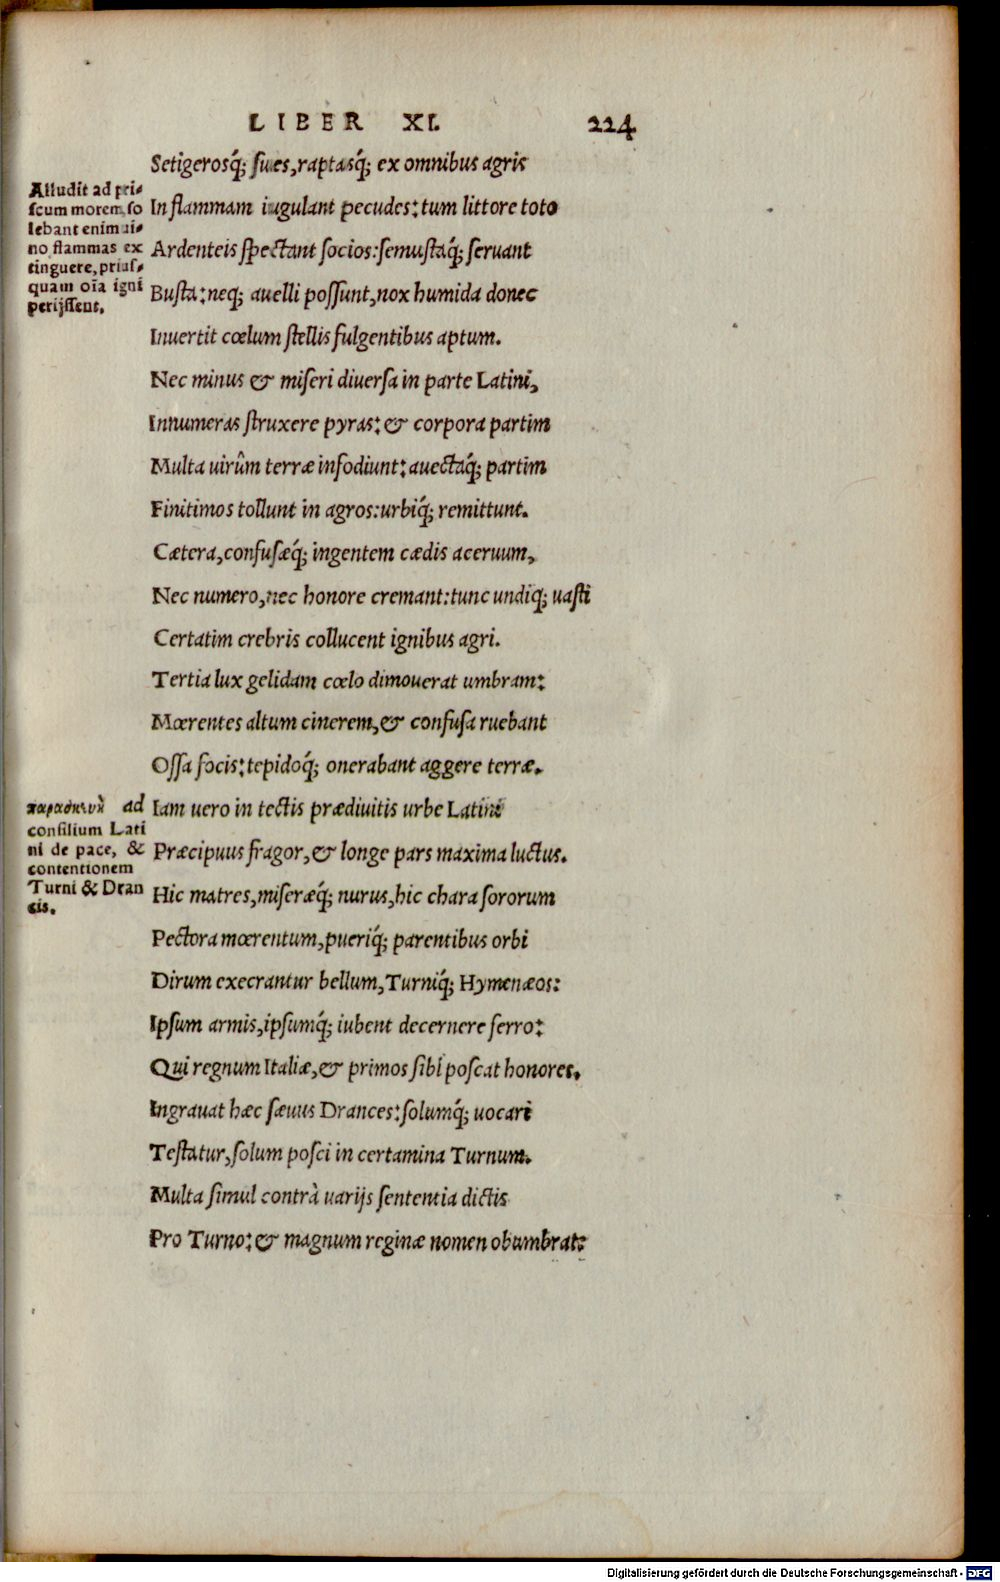 LIBER XI. 224
Setigerosq́; sues, raptasq́; ex omnibus agris
In flammam iugulant pecudes: tum littore toto
Ardenteis spectant socios: semustaq́; seruant
Busta: neq; auelli possunt, nox humida donec
Inuertit cœlum stellis fulgentibus aptum.
Nec minus & miseri diuersa in parte Latini,
Innumeras struxere pyras: & corpora partim
Multa uirûm terræ infodiunt: auectaq́; partim
Finitimos tollunt in agros: urbiq́; remittunt.
Cætera, confusæq́; ingentem cædis aceruum,
Nec numero, nec honore cremant: tunc undiq; uasti
Certatim crebris collucent ignibus agri.
Tertia lux gelidam cœlo dimouerat umbram:
Mœrentes altum cinerem, & confusa ruebant
Ossa focis: tepidoq́; onerabant aggere terræ.
Iam uero in tectis prædiuitis urbe Latini
Præcipuus fragor, & longe pars maxima luctus.
Hic matres, miseræq́; nurus, hic chara sororum
Pectora mœrentum, pueriq́; parentibus orbi
Dirum execrantur bellum, Turniq́; Hymenæos:
Ipsum armis, ipsumq́; iubent decernere ferro:
Qui regnum Italiæ, & primos sibi poscat honores.
Ingrauat hæc sæuus Drances: solumq́; uocari
Testatur, solum posci in certamina Turnum.
Multa simul contrà uarijs sententia dictis
Pro Turno: & magnum reginæ nomen obumbrat:
Alludit ad pri-
scum morem, so
lebant enim ui-
no flammas ex
tinguere, prius-
quam oīa igni
perijssent.
παρασκευὴ ad
consilium Lati
ni de pace, &
contentionem
Turni & Dran
cis.
Digitalisierung gefördert durch die Deutsche Forschungsgemeinschaft - DFG